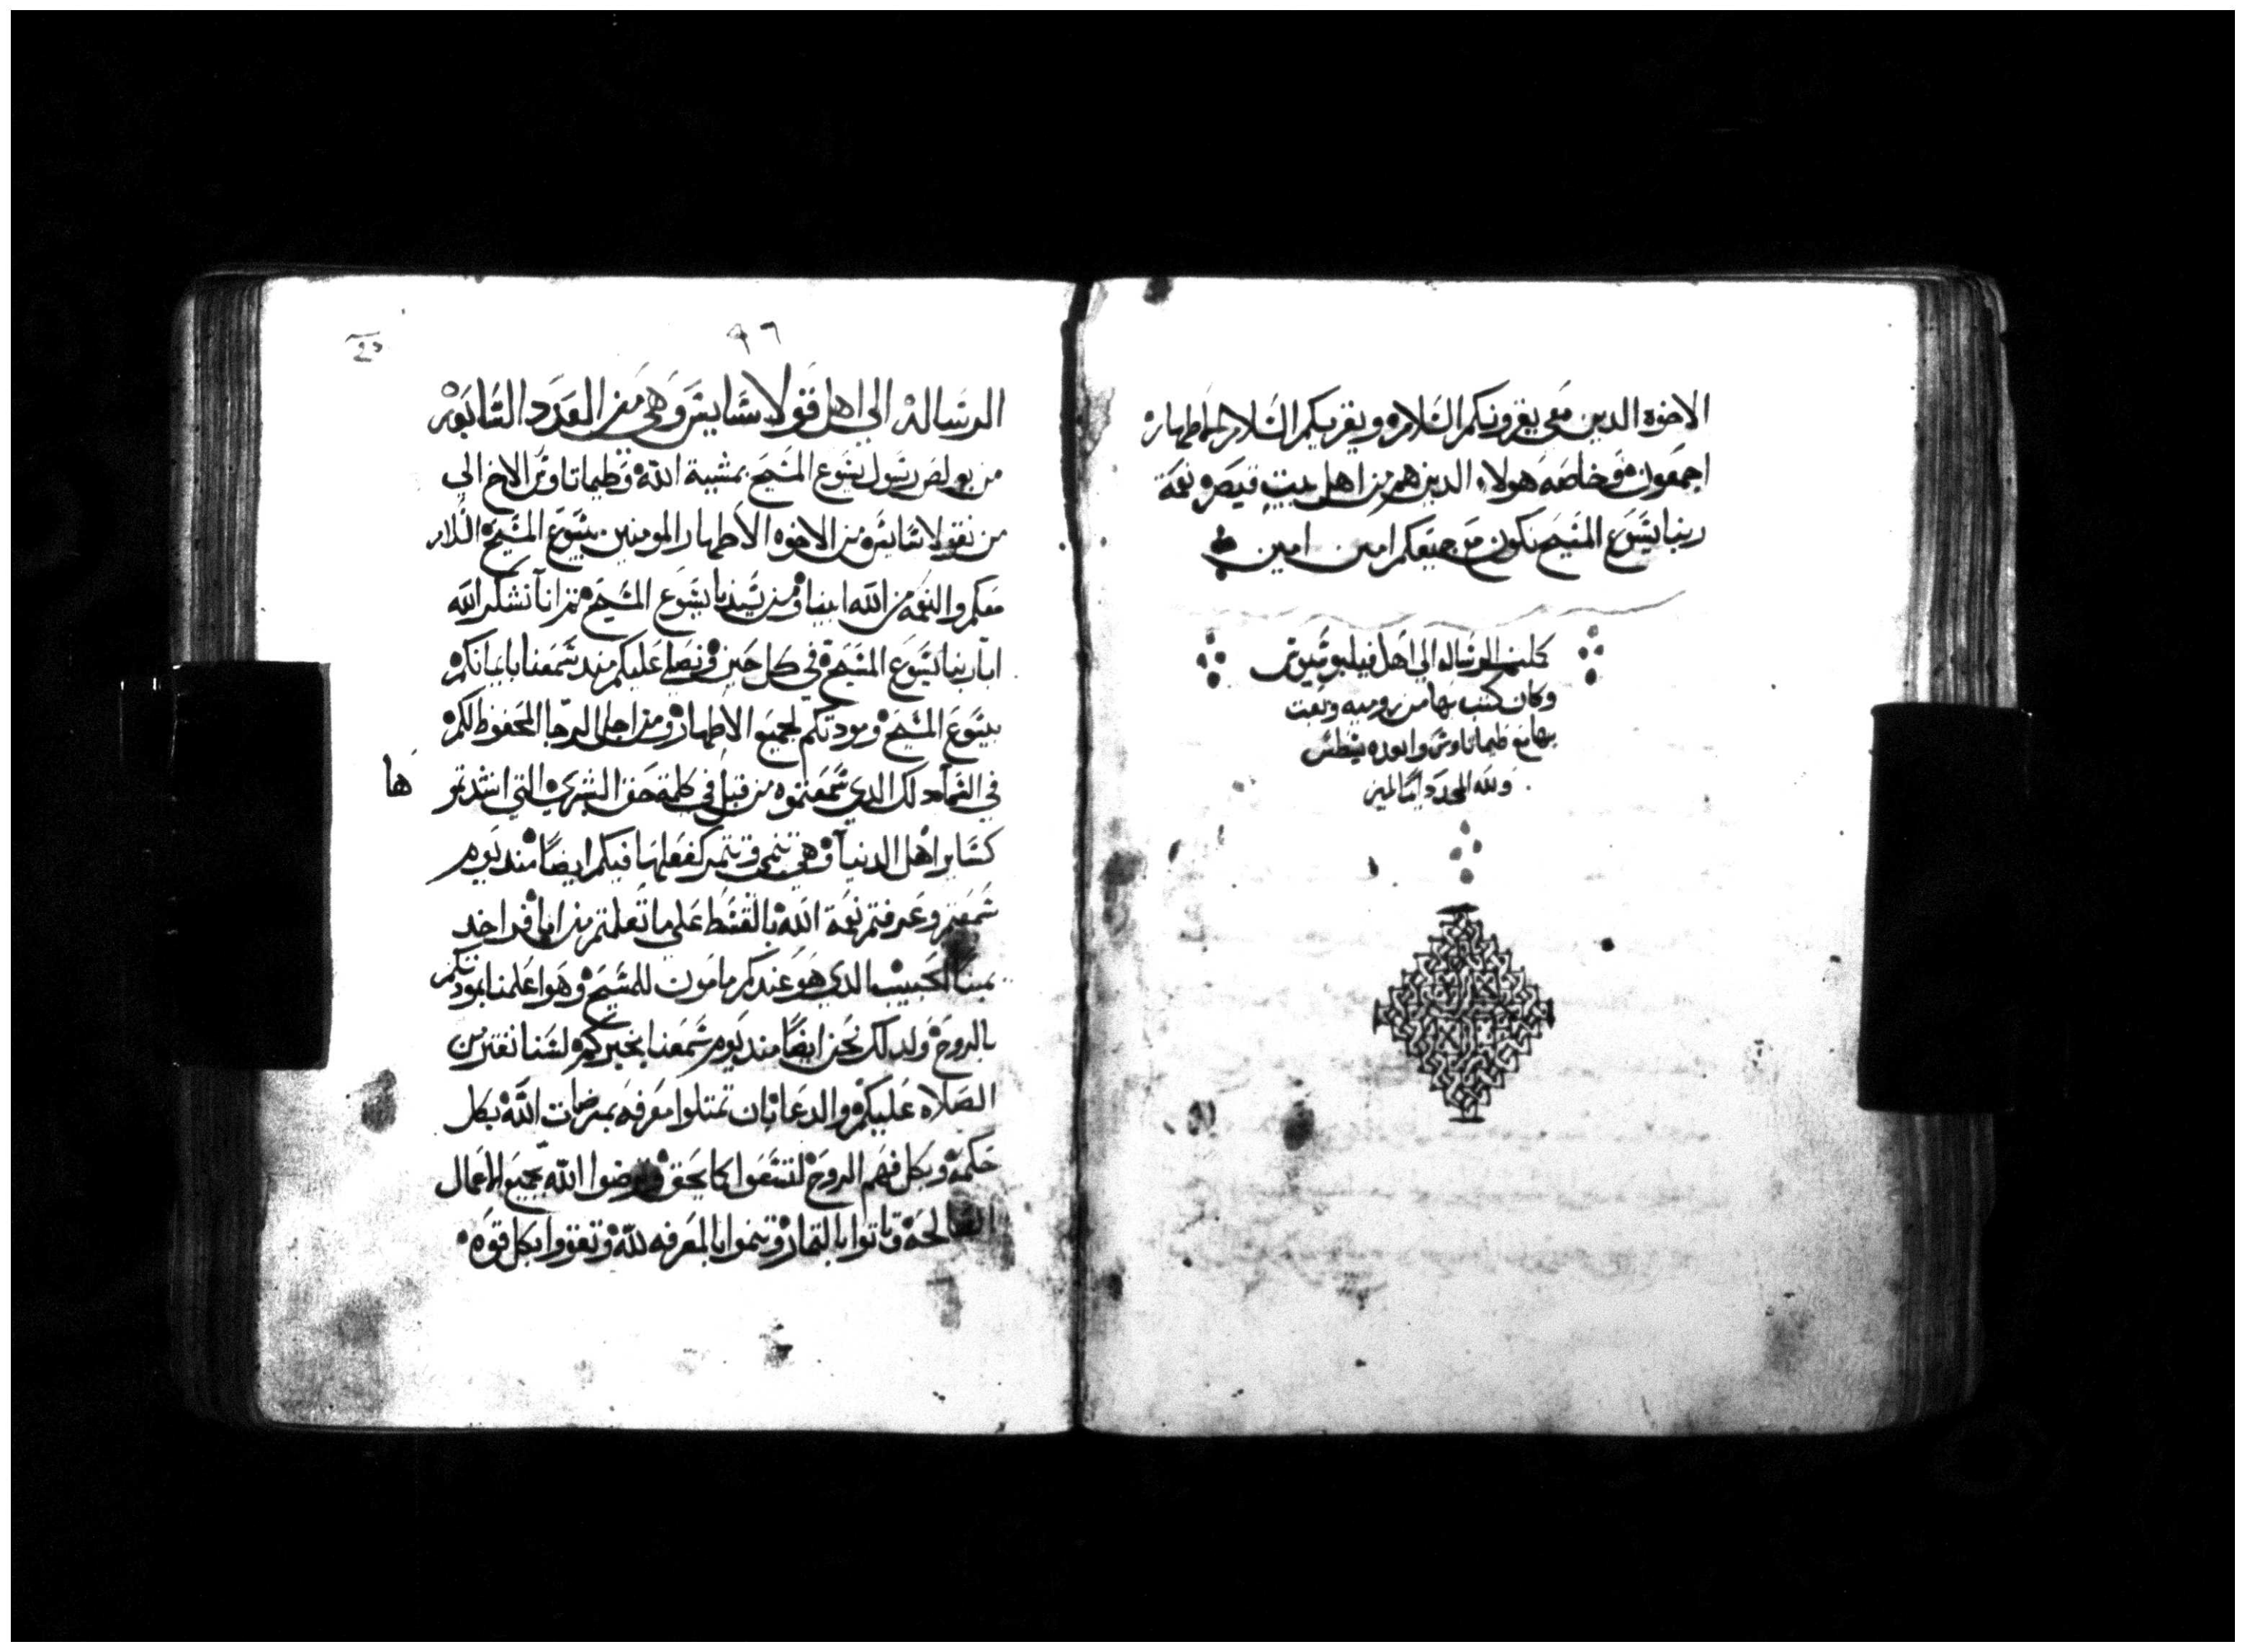 الاخوه الدين معي يقرونكم السلام ويقريكم السلام الاطهار
اجمعون وخاصه هولاء الدين هم من اهل بيت قيصر نعمة
ربنا يسوع المسيح تكون مع جميعكم امين امين
كملت الرساله الي اهل فيلبوسيوس
وكان كتب بها من روميه وبعت
بها مع طيماتاوس وابوده يطس
ولله المجد دايما
٩٦
الرساله الي اهل قولاسايس وهي من العدد السابعه
من بولص رسول يسوع المسيح بمشية الله وطيماتاوس الاخ الي
من بقولاسايس من الاخوه الاطهار المومنين بيسوع المسيح السلام
معكم والنعمه من الله ابينا ومن سيدنا يسوع المسيح تم انا نشكر الله
ابا ربنا يسوع المسيح في كل حين ونصلي عليكم مند سمعنا بايمانكم
بيسوع المسيح ومودتكم لجميع الاطهار ومن اجل الرجا المحفوظ لكم
في السما دلك الدي سمعتموه من قبل في كلمة حق البشري التي
ها
كساير اهل الدنيا وهي تنمي وتتمر كفعلها فيكم ايضا مند يوم
سمعتم وعرفتم نعمة الله بالقسط علي ما تعلمتم من
الحبيب الدي هو عندكم مامون للمسيح وهو اعلمنا بمودتكم
بالروح ولدلك نحن ايضا مند يوم سمعنا بخبركم لسنا نفتر من
الصلاه عليكم والدعا بان تمتلوا معرفه بمرضات الله بكل
حكمه وبكل فهم الروح لتسعوا كما يحق وترضوا الله بجميع الاعمال
الصالحه وتاتوا بالتمار وتنموا بالمعرفه لله وتقووا بكل قوه